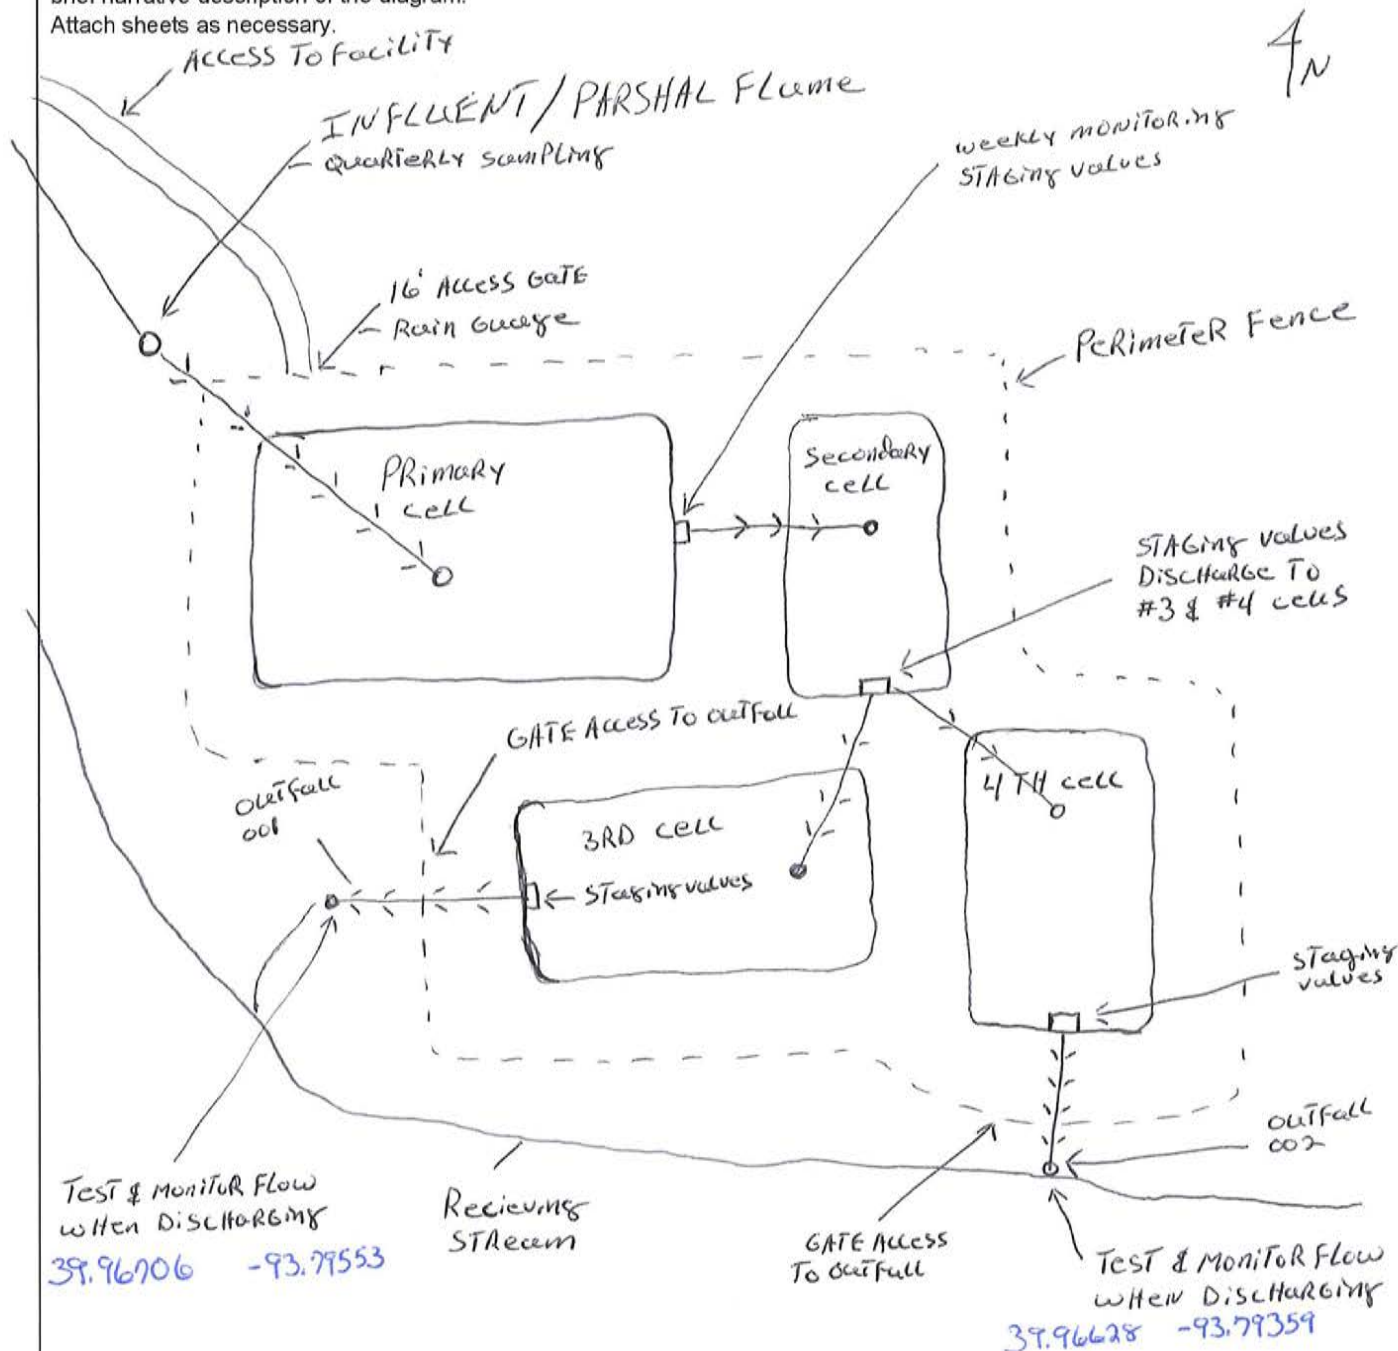 brief narrative description of the diagram.
Attach sheets as necessary.
ACCESS TO FACILITY
N
INFLUENT/PARSHAL Flume
- QUARTERLY SAMPLING
weekly MONITORING
STAGING valves
16' ACCESS GATE
- Rain Guage
PERIMETER Fence
PRIMARY
cell
Secondary
cell
STAGING valves
DISCHARGE TO
#3 & #4 cells
GATE ACCESS TO OUTFALL
OUTFALL
001
3RD cell
Staging valves
4TH cell
staging
valves
OUTFALL
002
TEST & MONITOR FLOW
WHEN DISCHARGING
39.96706 -93.79553
Recieving
STREAM
GATE ACCESS
TO OUTFALL
TEST & MONITOR FLOW
WHEN DISCHARGING
39.96628 -93.79359